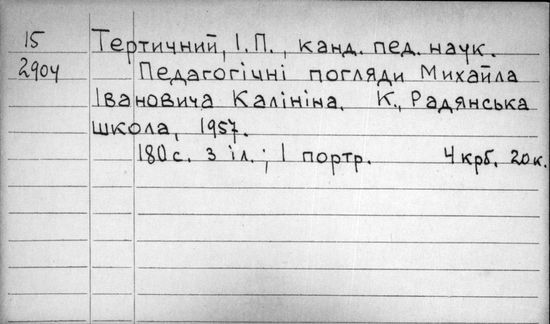 15 Тертичний, І.П., канд. пед. наук.
2904 Педагогічні погляди Михайла
Івановича Калініна. К., Радянська
школа, 1957.
180с. з іл.; 1 портр. 4 крб. 20к.